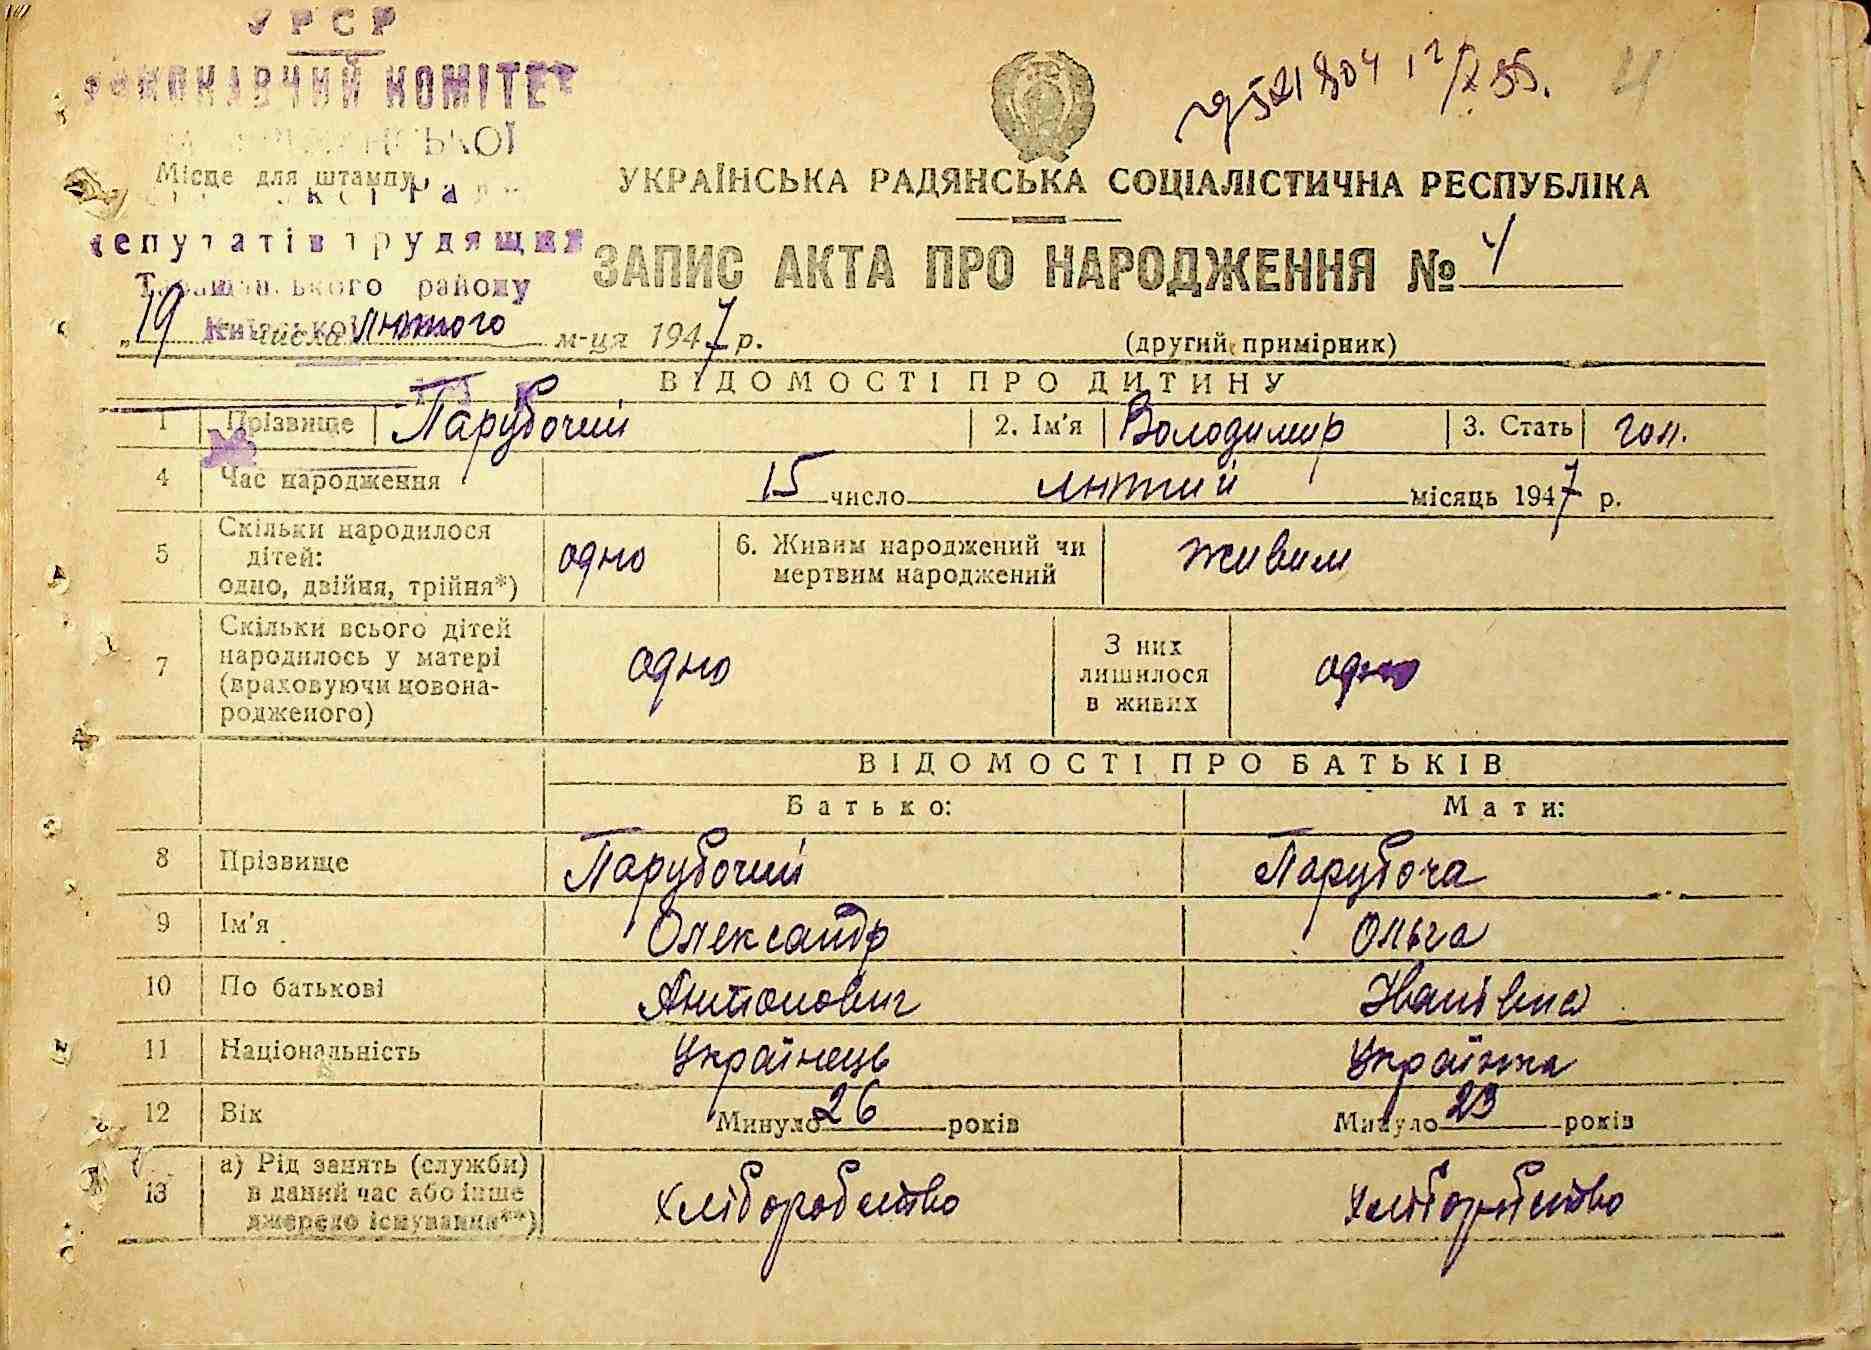 УРСР
ВИКОНАВЧИЙ КОМІТЕТ
Місце для штампу
депутатів трудящих
Таращанського району
Київської
ЧУ 521804 12/X 55.
4
УКРАЇНСЬКА РАДЯНСЬКА СОЦІАЛІСТИЧНА РЕСПУБЛІКА
ЗАПИС АКТА ПРО НАРОДЖЕННЯ № 4
„19 числа лютого м-ця 1947 р.
(другий примірник)
ВІДОМОСТІ ПРО ДИТИНУ
1 Прізвище Парубочий 2. Ім'я Володимир 3. Стать чол.
4 Час народження 15 число лютий місяць 1947 р.
5 Скільки народилося дітей: одно, двійня, трійня*) одно 6. Живим народжений чи мертвим народжений живим
7 Скільки всього дітей народилось у матері (враховуючи новонародженого) одно З них лишилося в живих одно
ВІДОМОСТІ ПРО БАТЬКІВ
Батько: Мати:
8 Прізвище Парубочий Парубоча
9 Ім'я Олександр Ольга
10 По батькові Антонович Іванівна
11 Національність Українець Українка
12 Вік Минуло 26 років Минуло 23 років
13 а) Рід занять (служби) в даний час або інше джерело існування**) Хліборобство Хліборобство